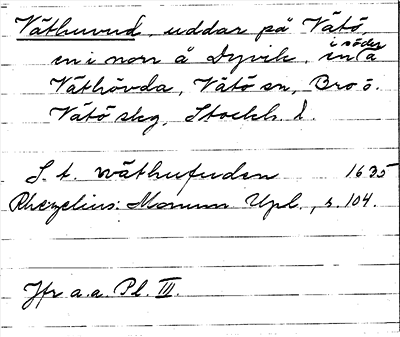 Väthuvud, uddar på Vätö,
en i norr å Dyvik, en i söder å
Väthövda, Vätö sn, Bro ö.
Vätö skg, Stockh. l.
S. t. wäthufuden 1635
Rhezelius: Monum Upl., s. 104.
Jfr a.a. Pl. III.